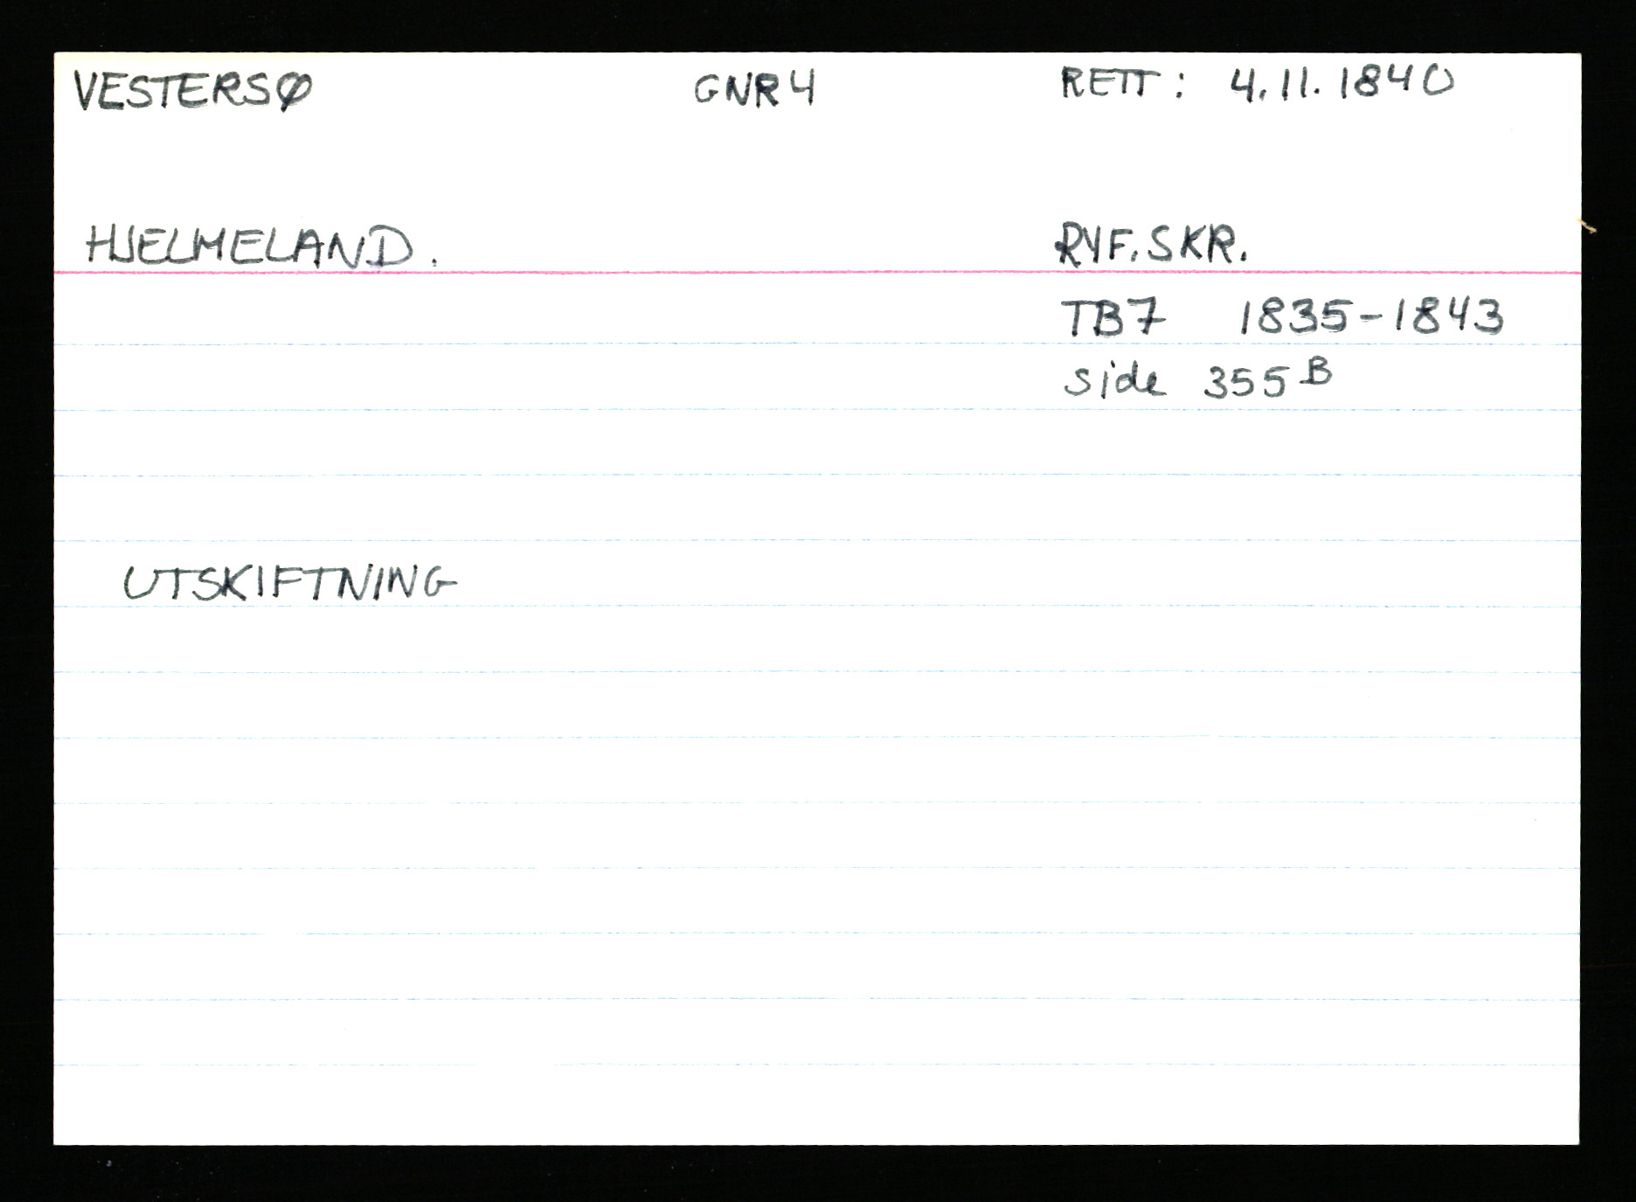 VESTERSØ GNR 4 RETT: 4.11.1840
HJELMELAND. RYF.SKR.
TB7 1835-1843
side 355B
UTSKIFTNING